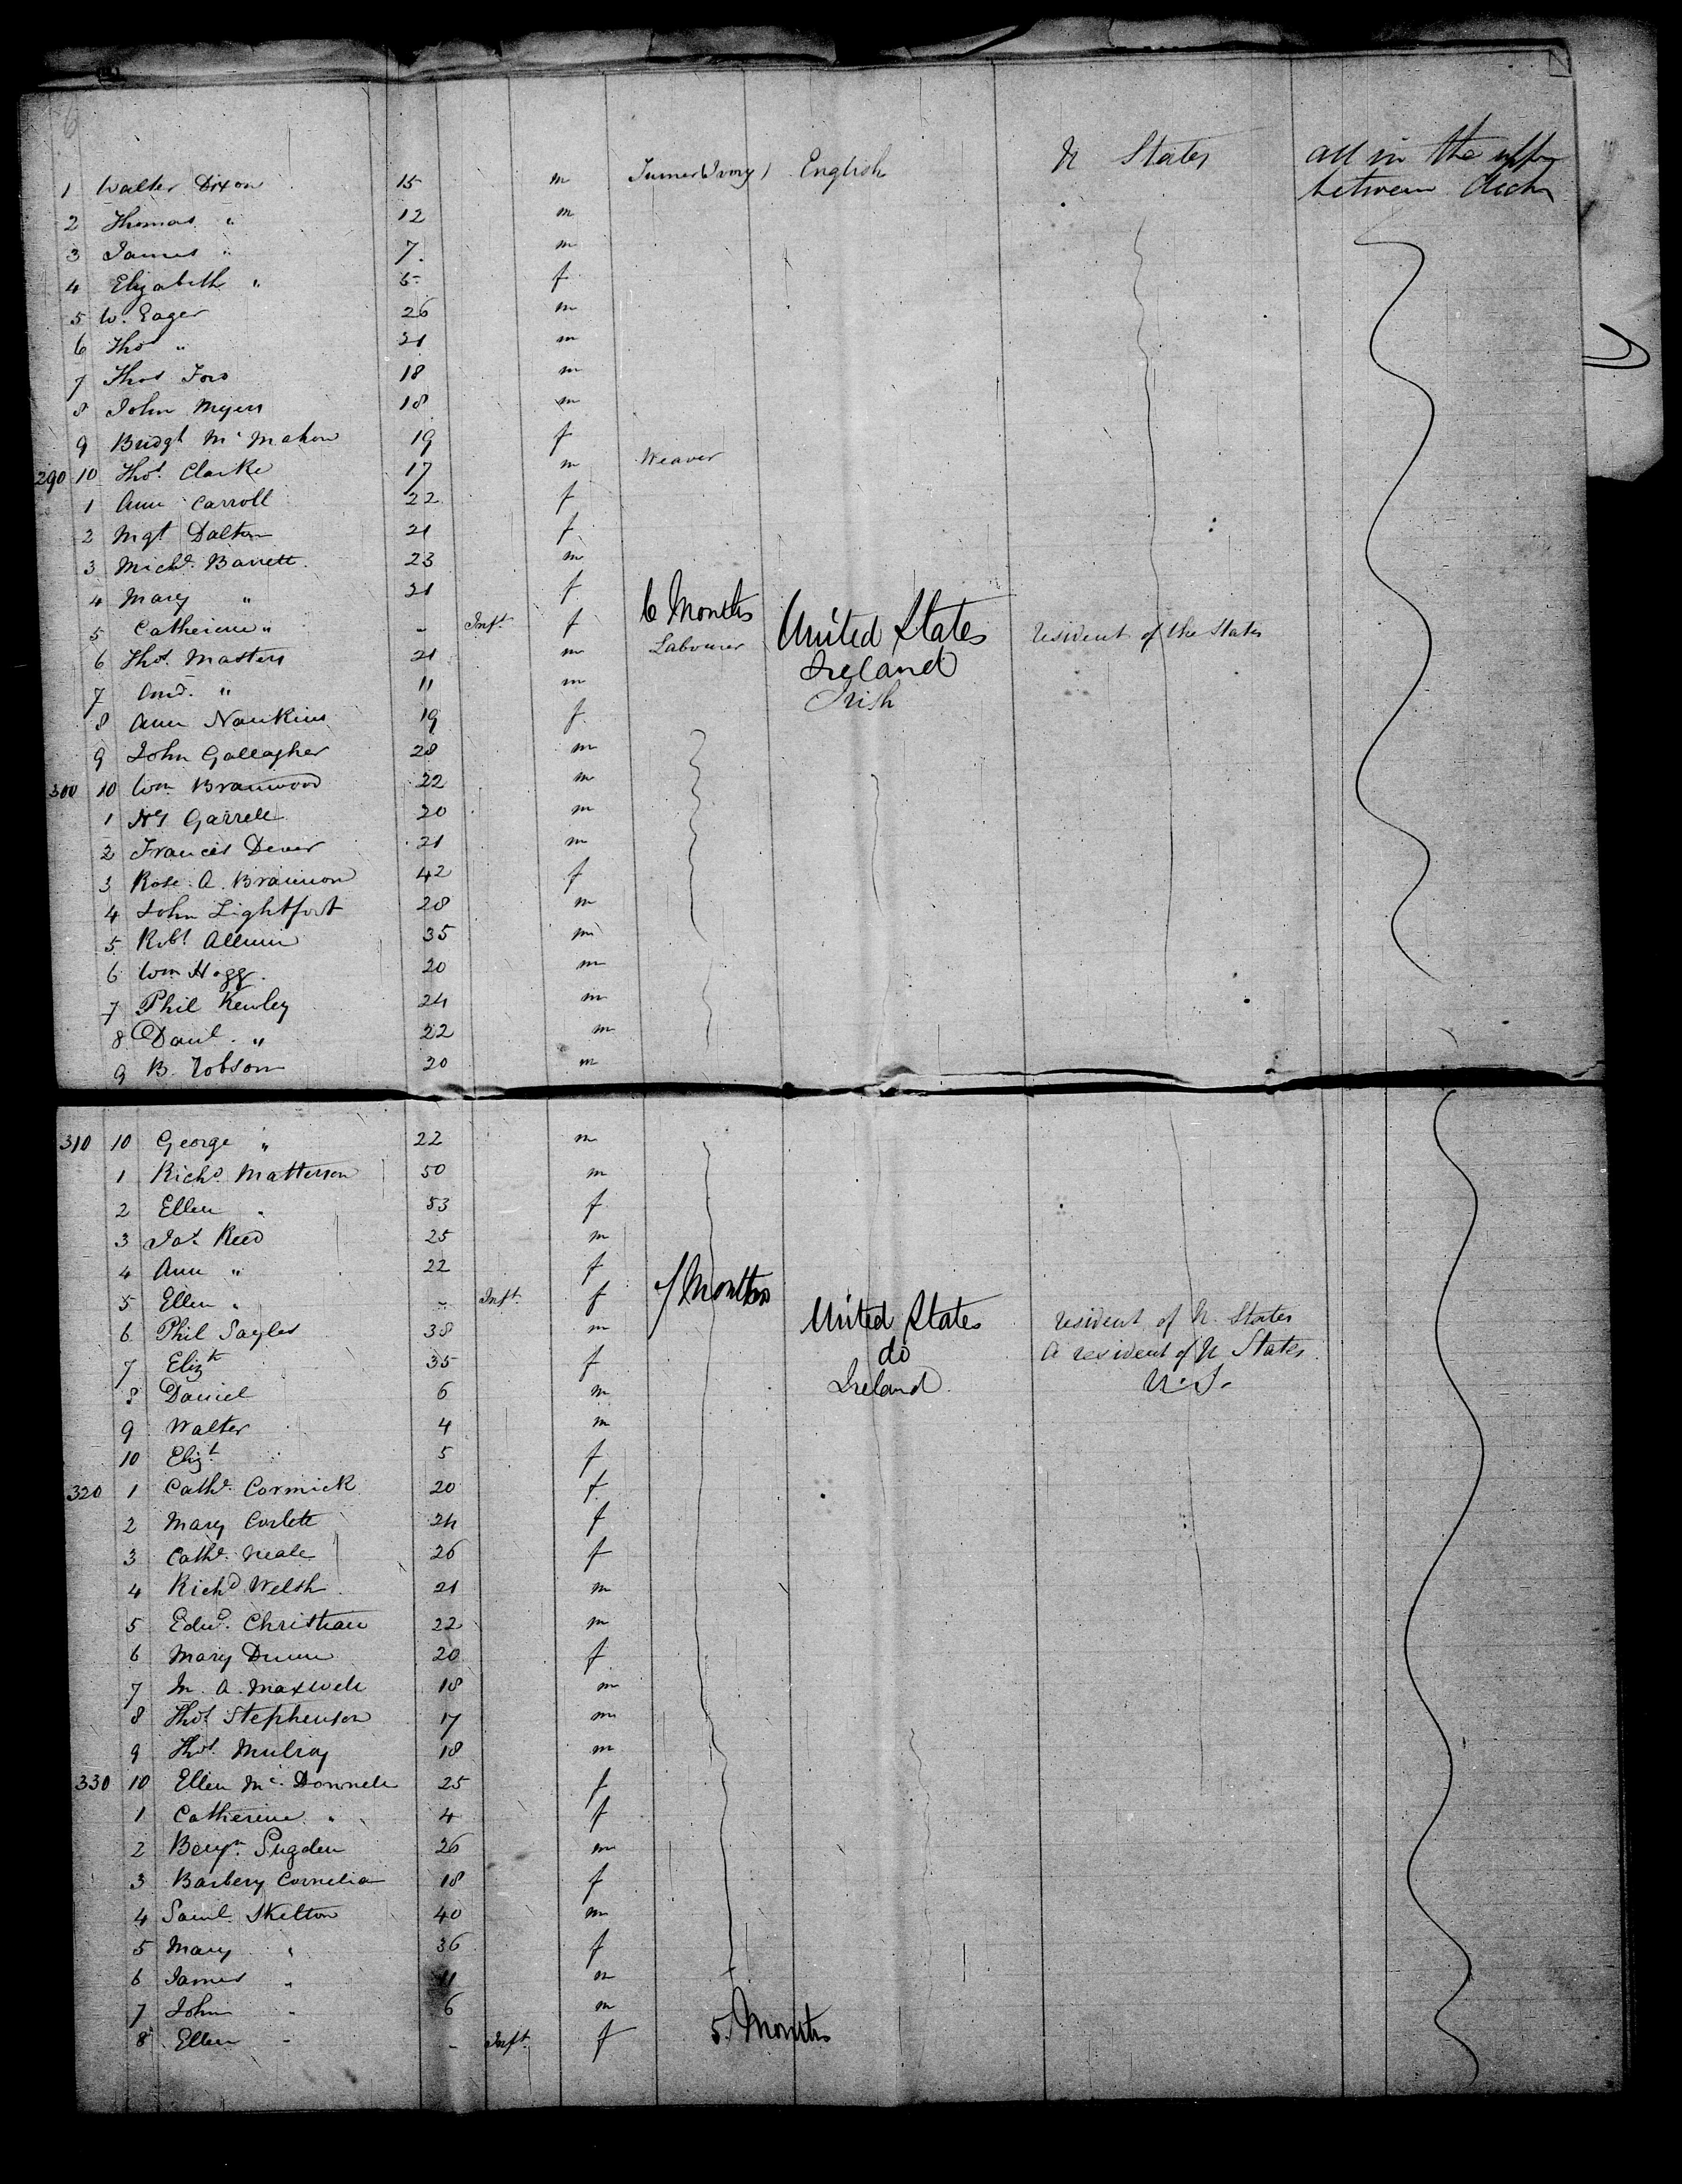 6
1 Walter Dixon 15 m Turner (Ivory) English U States all in the upper
between decks
2 Thomas " 12 m
3 James " 7 m
4 Elizabeth " 5 f
5 W. Eager 26 m
6 Thos " 21 m
7 Thos 18 m
8 John Myers 18 m
9 Bridgt McMahon 19 f
290 10 Thos. Clarke 17 m Weaver
1 Ann Carroll 22 f
2 Mgt Dalton 21 f
3 Michl. Barrett 23 m
4 Mary " 21 f
5 Catherine " - Inft. f 6 Months United States resident of the States
6 Thos. Masters 21 m Labourer Ireland
7 And. " 11 m Irish
8 Ann Nankins 19 f
9 John Gallagher 28 m
300 10 Wm. Branwood 22 m
1 Garrell 20 m
2 Francis Dever 21 m
3 Rose A. Brannon 42 f
4 John Lightfoot 28 m
5 Robt 35 m
6 Wm Hogg. 20 m
7 Phil Kewley 24 m
8 Danl. " 22 m
9 B. Robson 20 m
310 10 George " 22 m
1 Richd Matterson 50 m
2 Ellen " 53 f
3 Jas. Reed 25 m
4 Ann " 22 f
5 Ellen " - Inft. f 7 Months United States resident of U. States
6 Phil Sayles 38 m do A resident of U States
7 Elizth 35 f Ireland U. S.
8 Daniel 6 m
9 Walter 4 m
10 Elizt 5 f
320 1 Cathe. Cormick 20 f
2 Mary Corlett 24 f
3 Cathe. Neale 26 f
4 Richd Welsh 21 m
5 Edwd. Christian 22 m
6 Mary Dunn 20 f
7 M. A. Maxwell 18 m
8 Thos Stephenson 17 m
9 Thos. Mulroy 18 m
330 10 Ellen McDonnell 25 f
1 Catherine " 4 f
2 Benjn. Sugden 26 m
3 Barbery Cornelia 18 f
4 Saml. Skelton 40 m
5 Mary " 36 f
6 James " 11 m
7 John " 6 m
8 Ellen " - Inft. f 5 Months